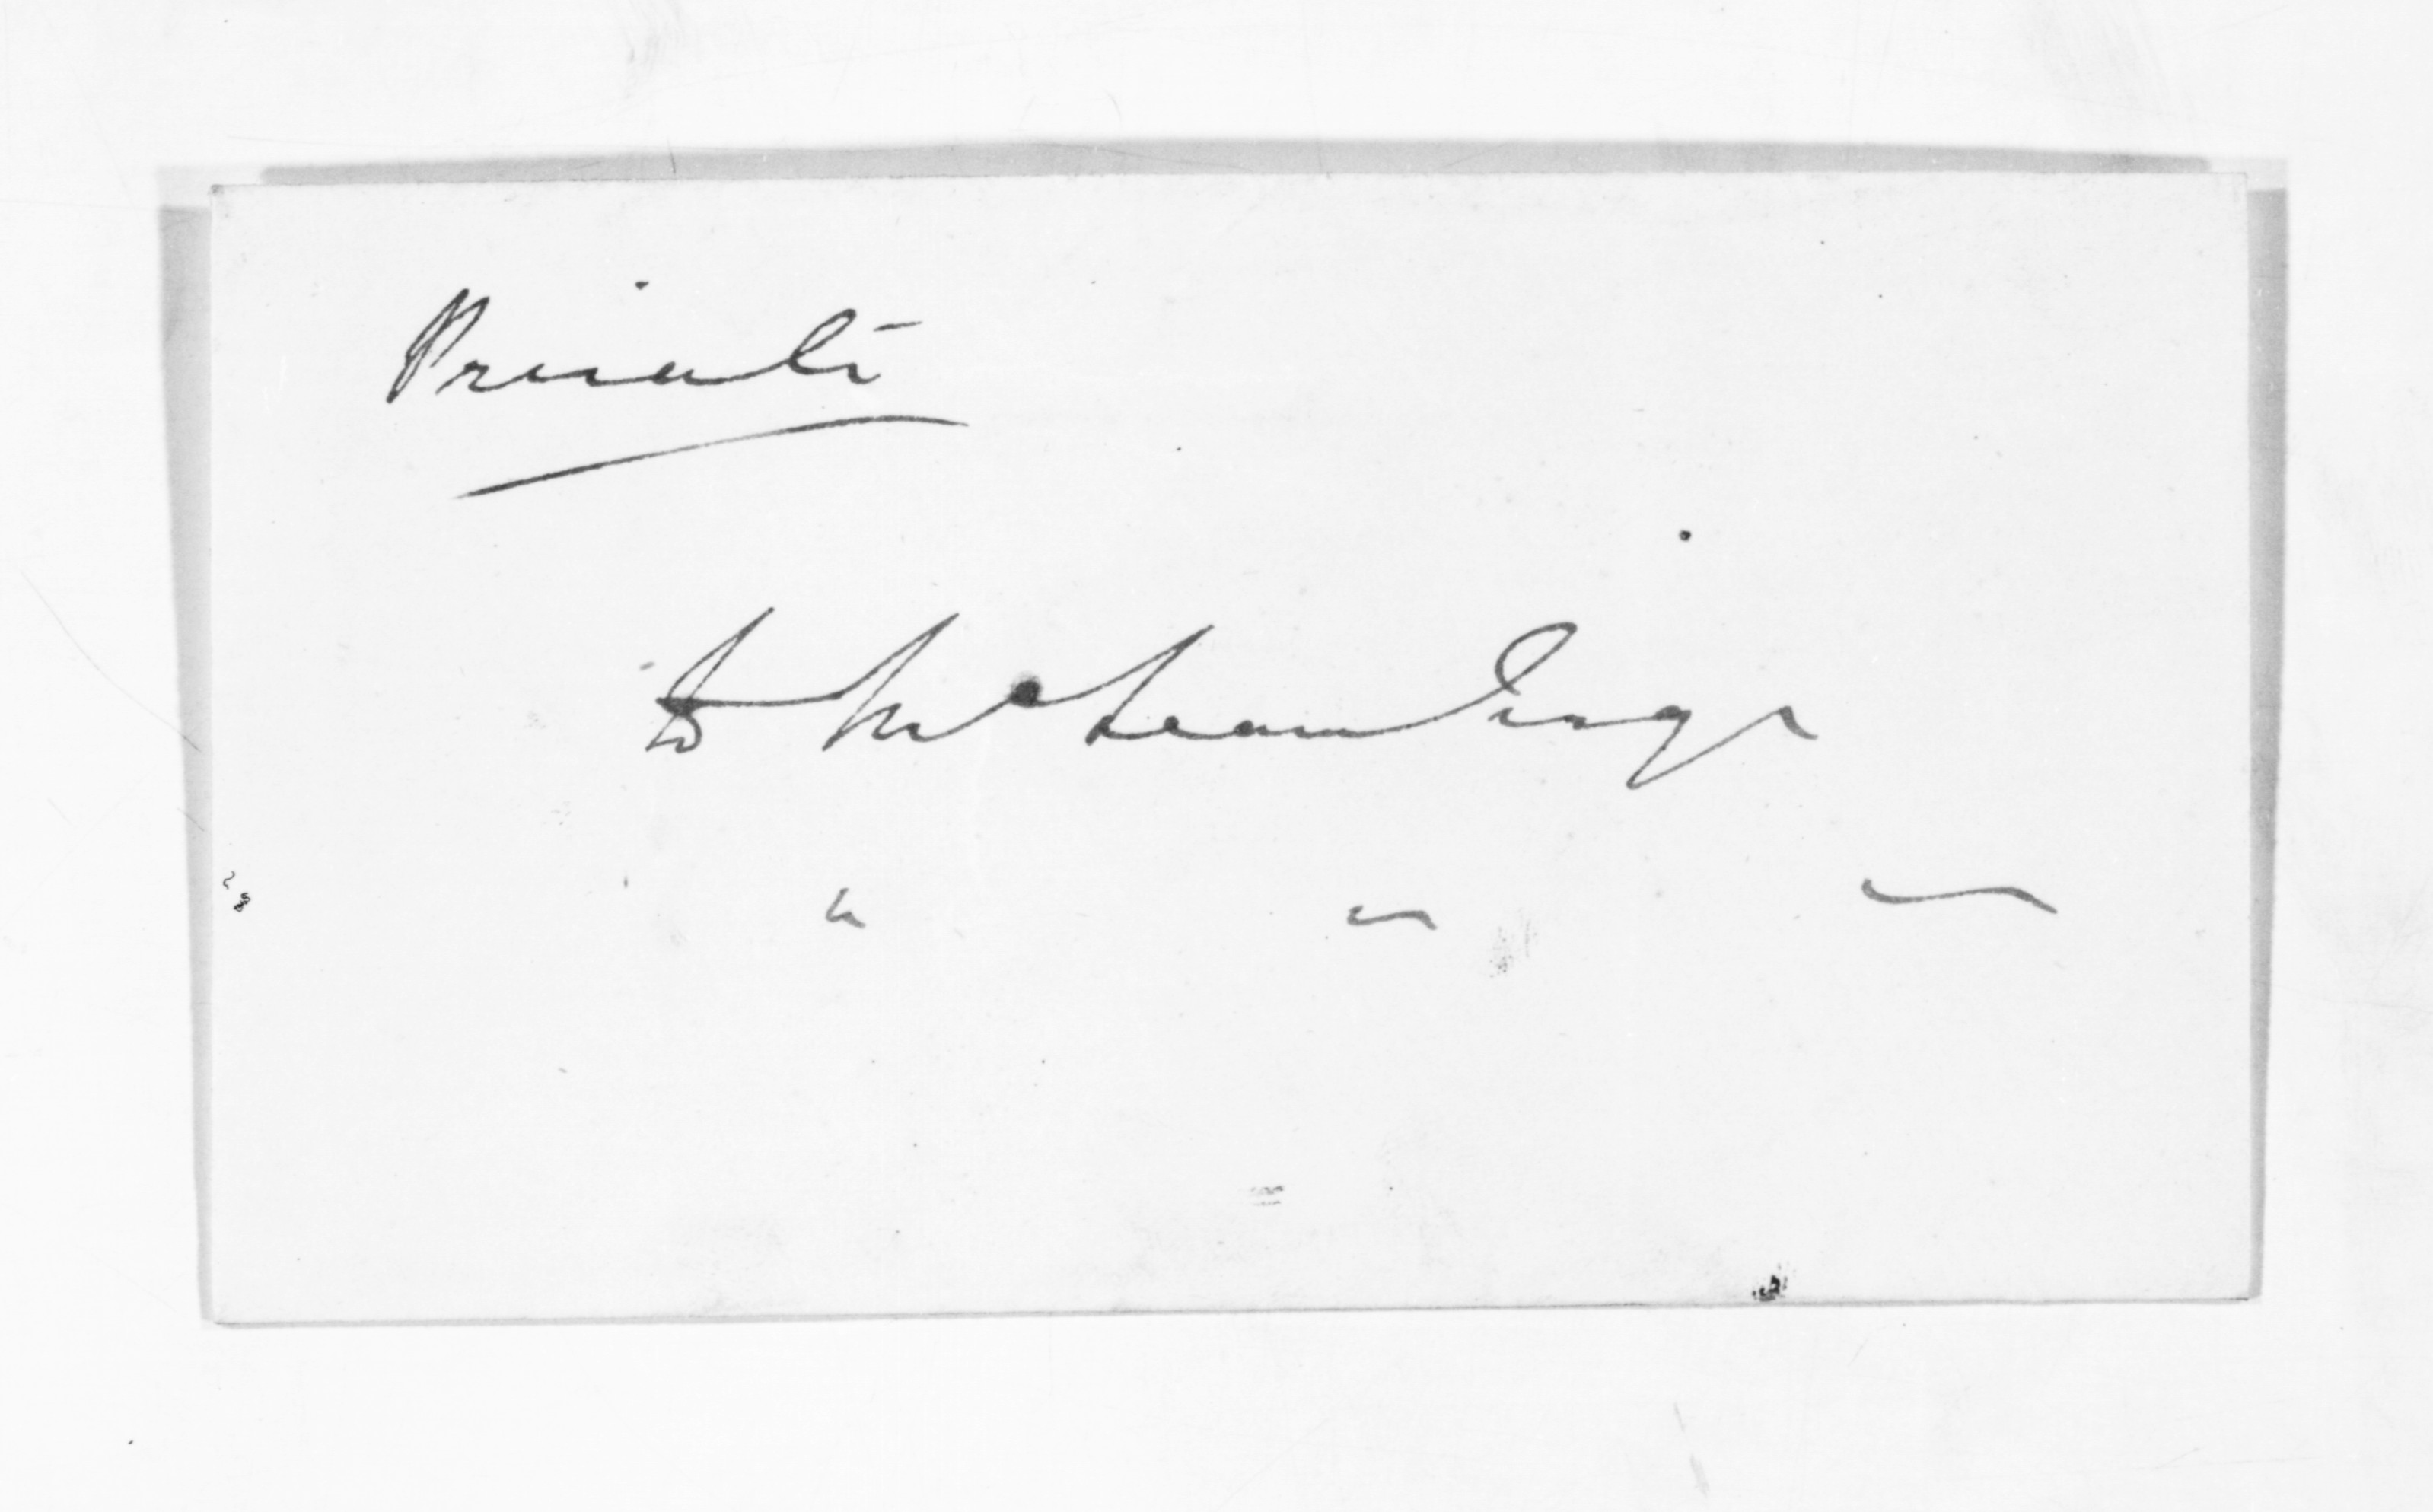 Private
D McLean Esqr
" " "